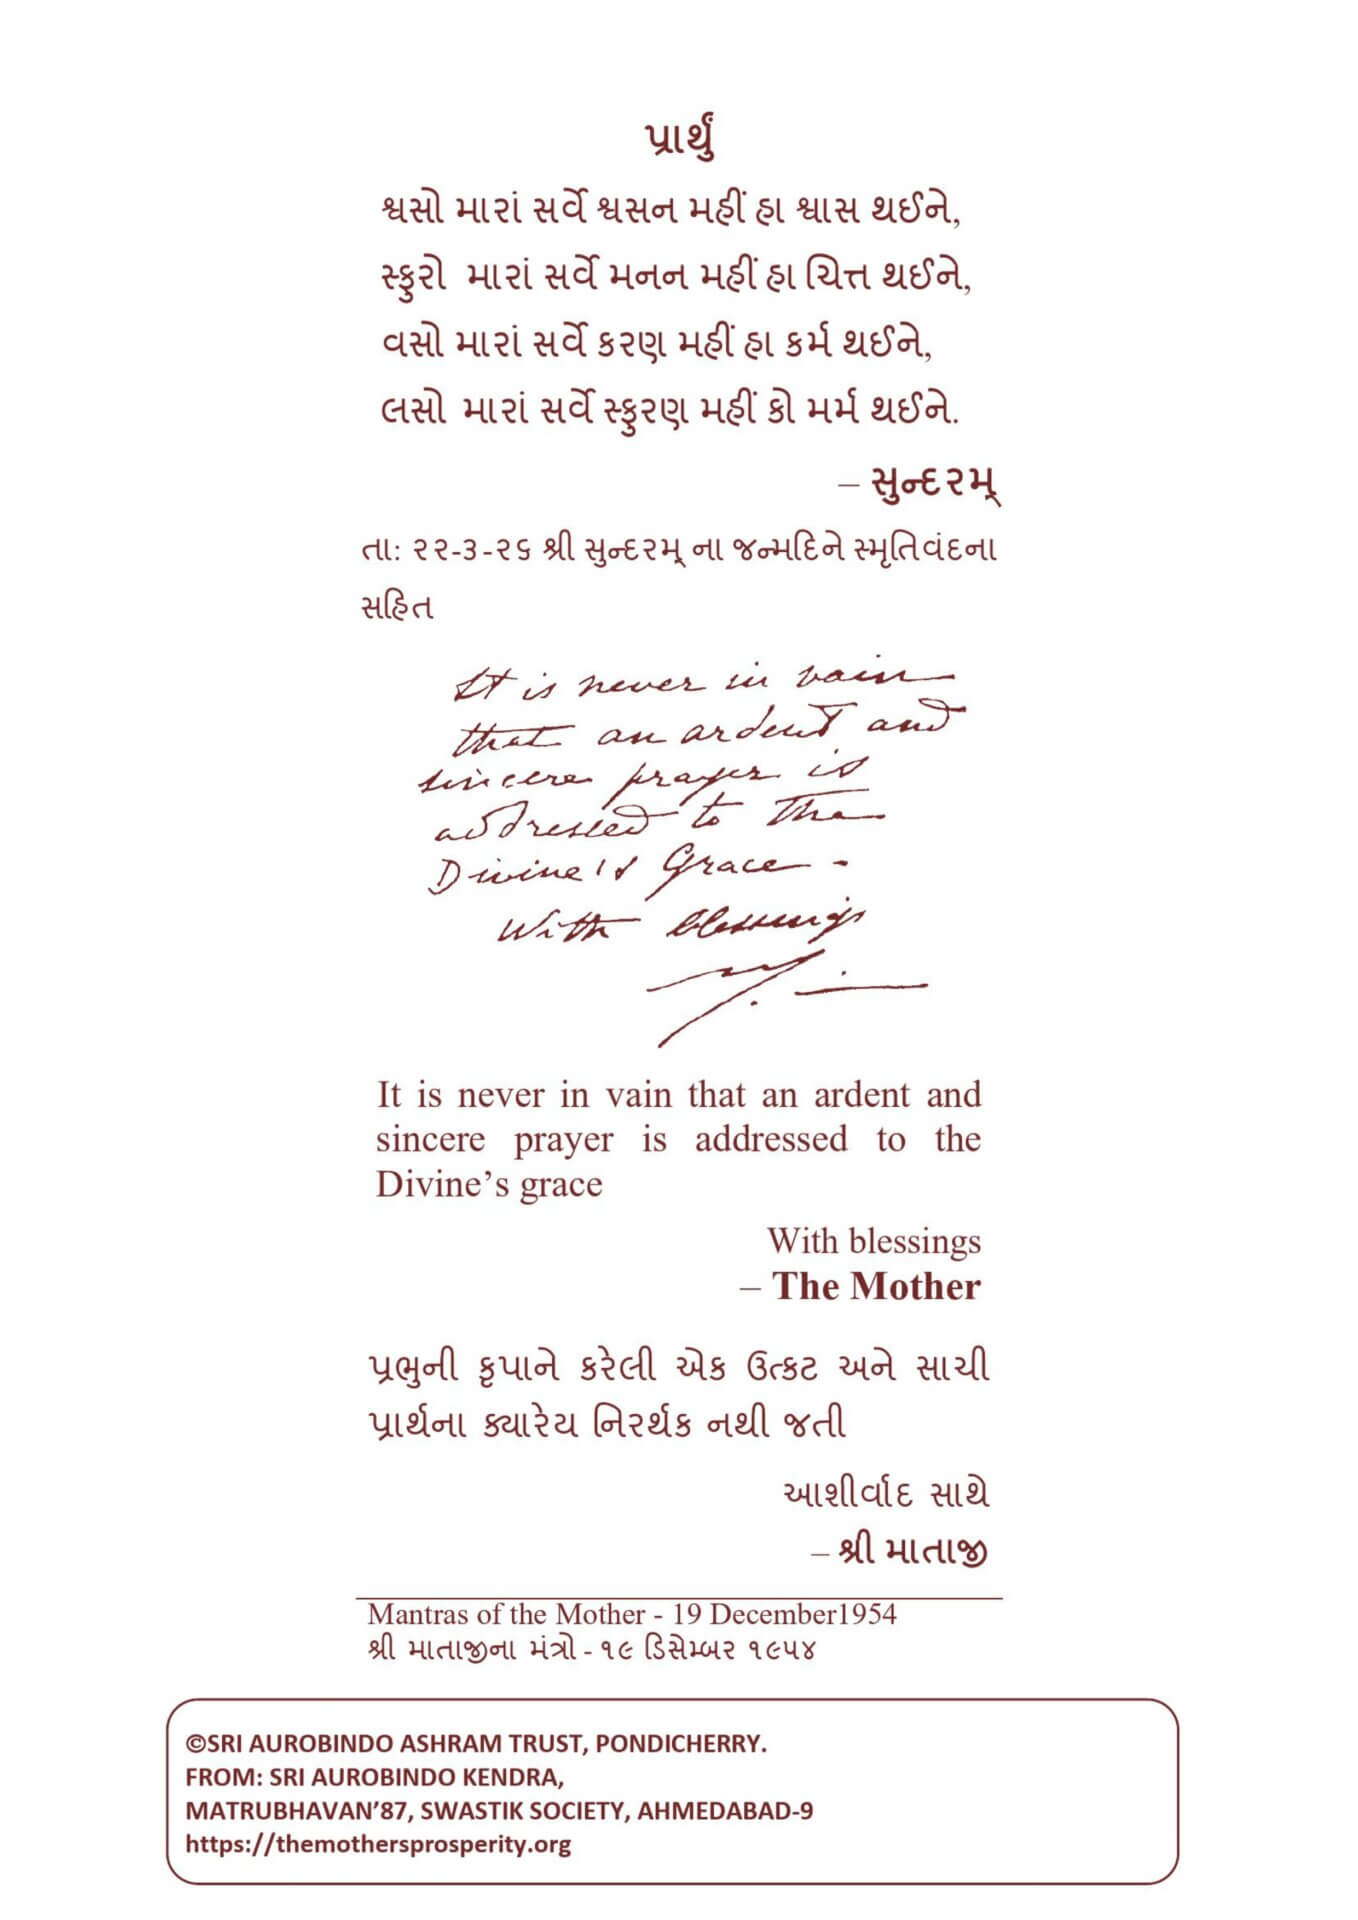 પ્રાર્થું
શ્વસો મારાં સર્વે શ્વસન મહીં હા શ્વાસ થઈને,
સ્ફુરો મારાં સર્વે મનન મહીં હા ચિત્ત થઈને,
વસો મારાં સર્વે કરણ મહીં હા કર્મ થઈને,
લસો મારાં સર્વે સ્ફુરણ મહીં કો મર્મ થઈને.
– સુન્દરમ્
તા: ૨૨-૩-૨૬ શ્રી સુન્દરમ્ ના જન્મદિને સ્મૃતિવંદના
સહિત
It is never in vain
that an ardent and
sincere prayer is
addressed to the
Divine's Grace -
With blessings
It is never in vain that an ardent and
sincere prayer is addressed to the
Divine’s grace
With blessings
– The Mother
પ્રભુની કૃપાને કરેલી એક ઉત્કટ અને સાચી
પ્રાર્થના ક્યારેય નિરર્થક નથી જતી
આશીર્વાદ સાથે
– શ્રી માતાજી
Mantras of the Mother - 19 December1954
શ્રી માતાજીના મંત્રો - ૧૯ ડિસેમ્બર ૧૯૫૪
©SRI AUROBINDO ASHRAM TRUST, PONDICHERRY.
FROM: SRI AUROBINDO KENDRA,
MATRUBHAVAN’87, SWASTIK SOCIETY, AHMEDABAD-9
https://themothersprosperity.org